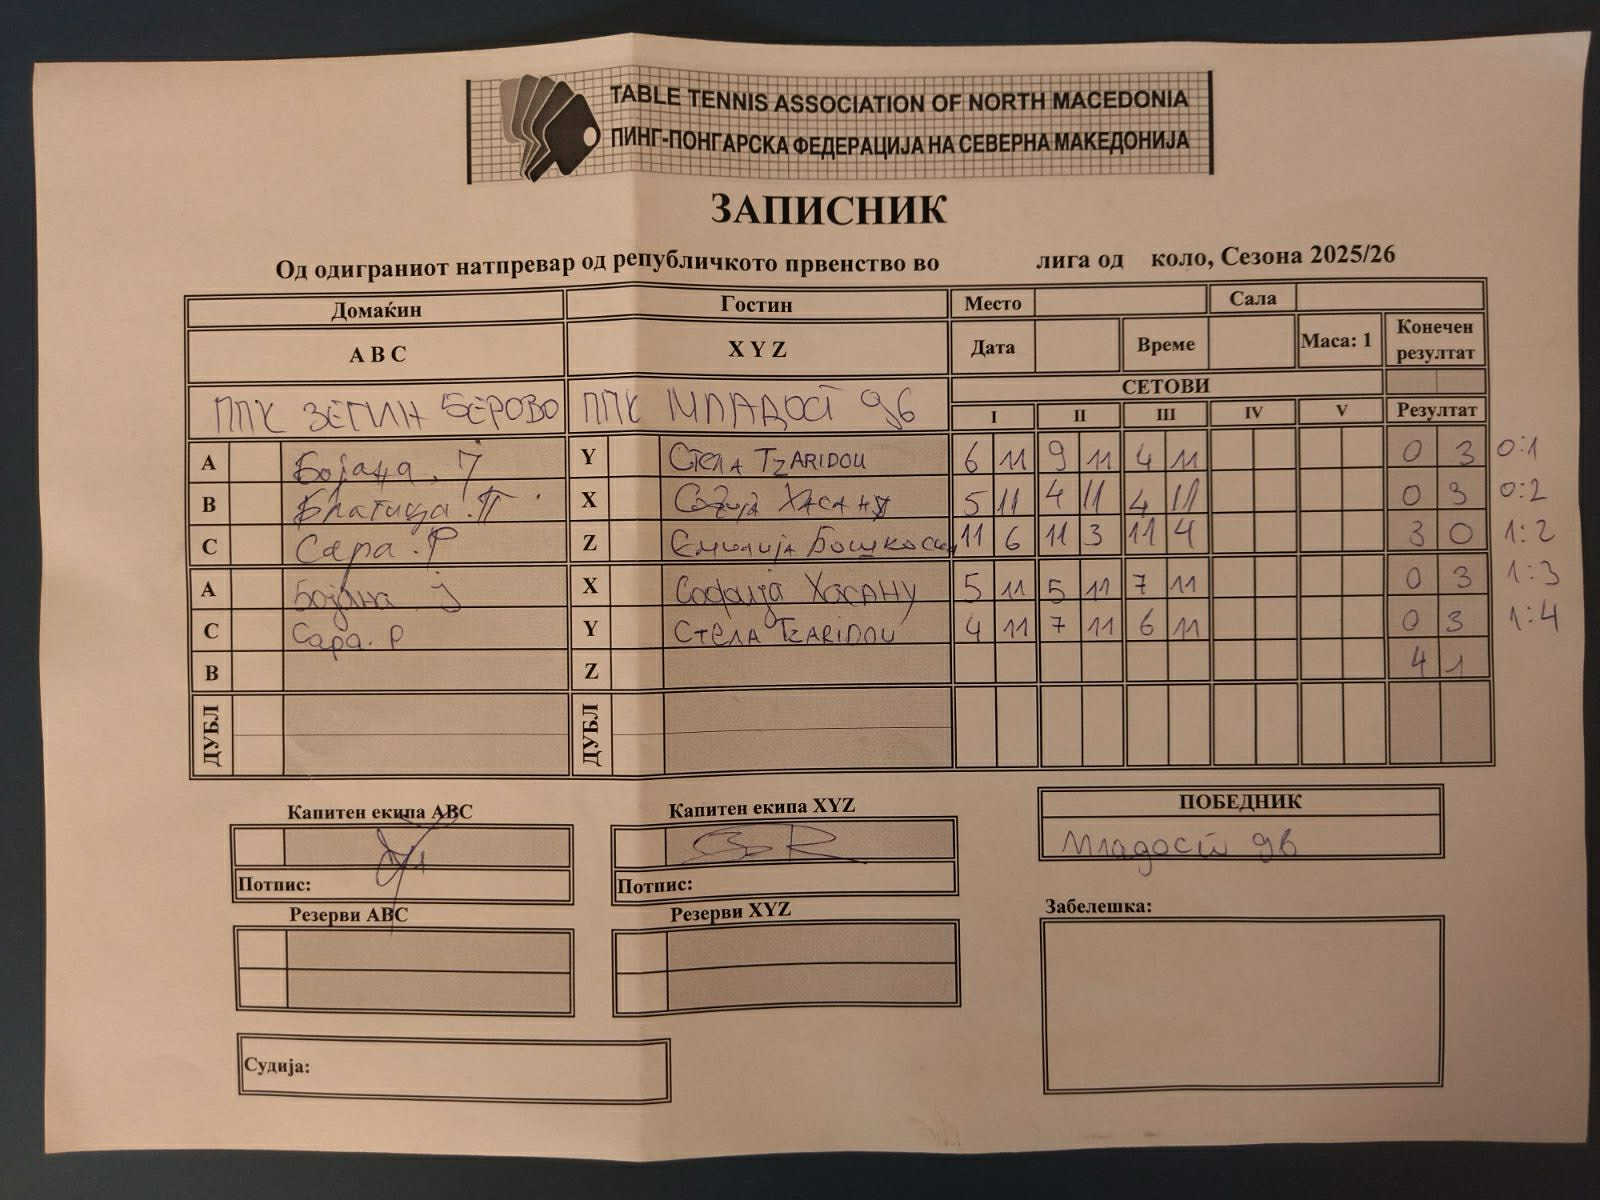 TABLE TENNIS ASSOCIATION OF NORTH MACEDONIA
ПИНГ-ПОНГАРСКА ФЕДЕРАЦИЈА НА СЕВЕРНА МАКЕДОНИЈА
ЗАПИСНИК
Од одиграниот натпревар од републичкото првенство во лига од коло, Сезона 2025/26
Домаќин Гостин Место Сала
A B C X Y Z Дата Време Маса: 1 Конечен резултат
СЕТОВИ
ППК ЗЕГИН БЕРОВО ППК МЛАДОСТ 96 I II III IV V Резултат
A Бојана . Ј Y Стела TZARIDOU 6 11 9 11 4 11 0 3 0:1
B Братица . П X Софија Хасану 5 11 4 11 4 11 0 3 0:2
C Сара . Р Z Емилија Бошкоски 11 6 11 3 11 4 3 0 1:2
A Бојана Ј X Софија Хасану 5 11 5 11 7 11 0 3 1:3
C Сара. Р Y Стела TZARIDOU 4 11 7 11 6 11 0 3 1:4
B Z 4 1
ДУБЛ ДУБЛ
Капитен екипа ABC Капитен екипа XYZ ПОБЕДНИК
Младост 96
Потпис: Потпис:
Резерви ABC Резерви XYZ Забелешка:
Судија: